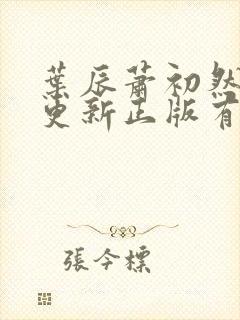 葉辰蕭初然
更新正版有
張今標